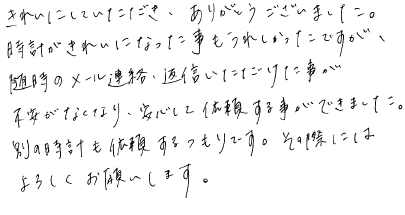 きれいにしていただき、ありがとうございました。
時計がきれいになった事もうれしかったですが、
随時のメール連絡・返信いただけた事が
不安がなくなり、安心して依頼する事ができました。
別の時計も依頼するつもりです。その際には
よろしくお願いします。